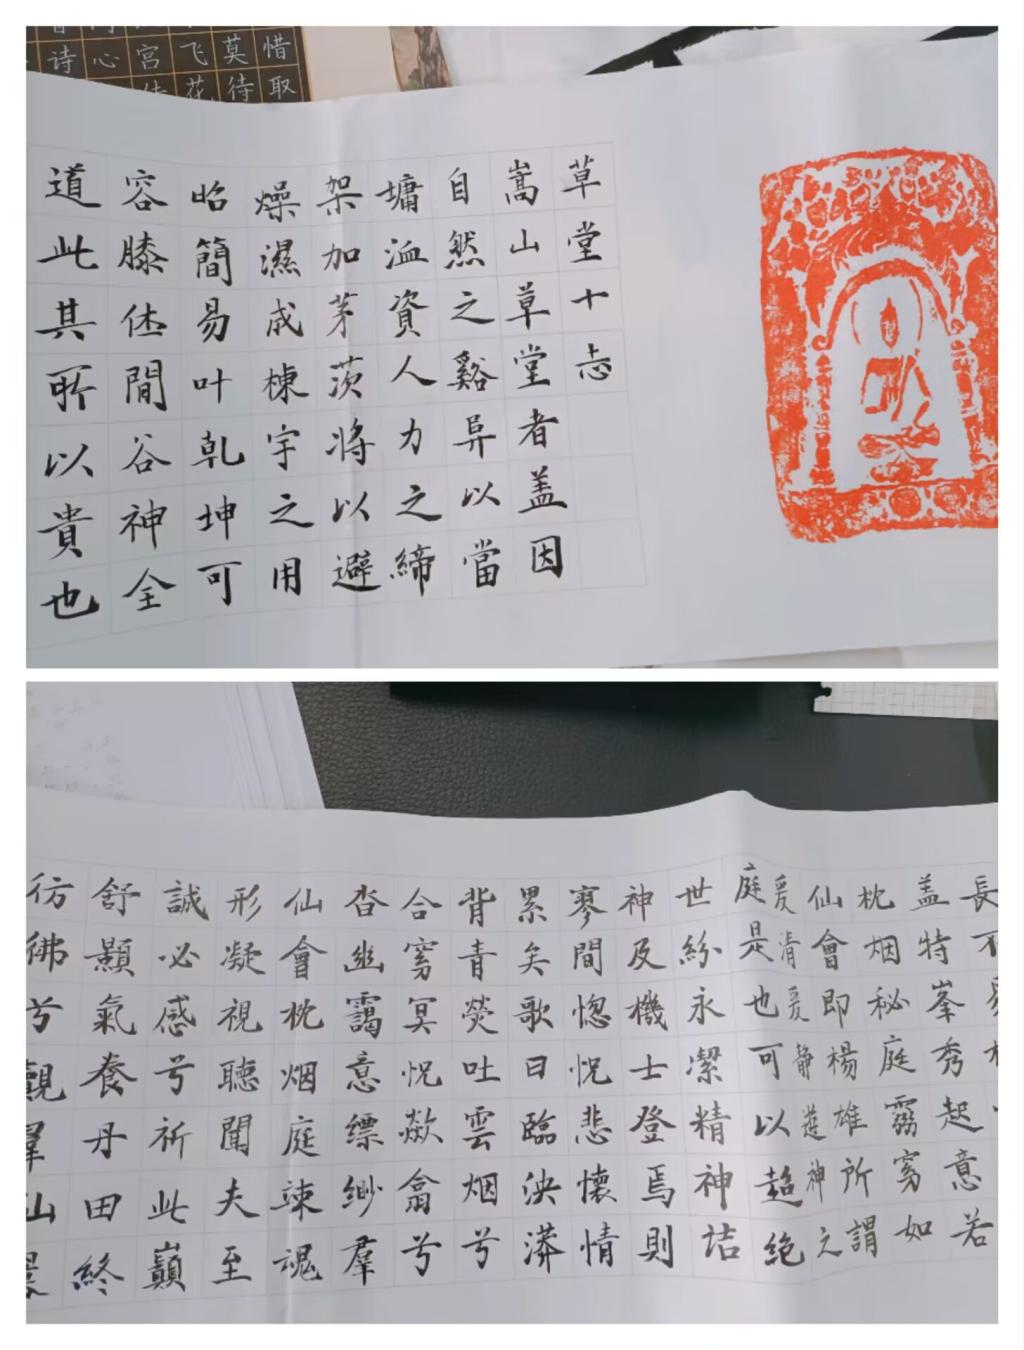 惜取
莫待
飞花
宫
心
诗
草堂十志
嵩山草堂者盖因
自然之谿异以當
墉洫資人力之締
架加茅茨將以避
燥濕成棟宇之用
昭簡易叶乾坤可
容膝休閒谷神全
道此其所以貴也
長不
盖特峯秀起意若
枕烟秘庭窈如
仙會即楊雄所謂
爰清爰靜遊神之
庭是也可以超绝
世紛永潔精神诘
神及機士登焉則
寥間惚恍悲懷情
累矣歌曰臨泱漭
背青熒吐雲烟兮
合窅冥怳歘翕兮
沓幽靄意缥缈羣
仙會枕烟庭竦魂
形凝視聽聞夫至
誠必感兮祈此巔
舒顥氣養丹田終
彷彿兮觀羣仙